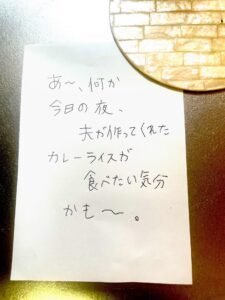 あ〜、何か
今日の夜、
夫が作ってくれた
カレーライスが
食べたい気分
かも〜。